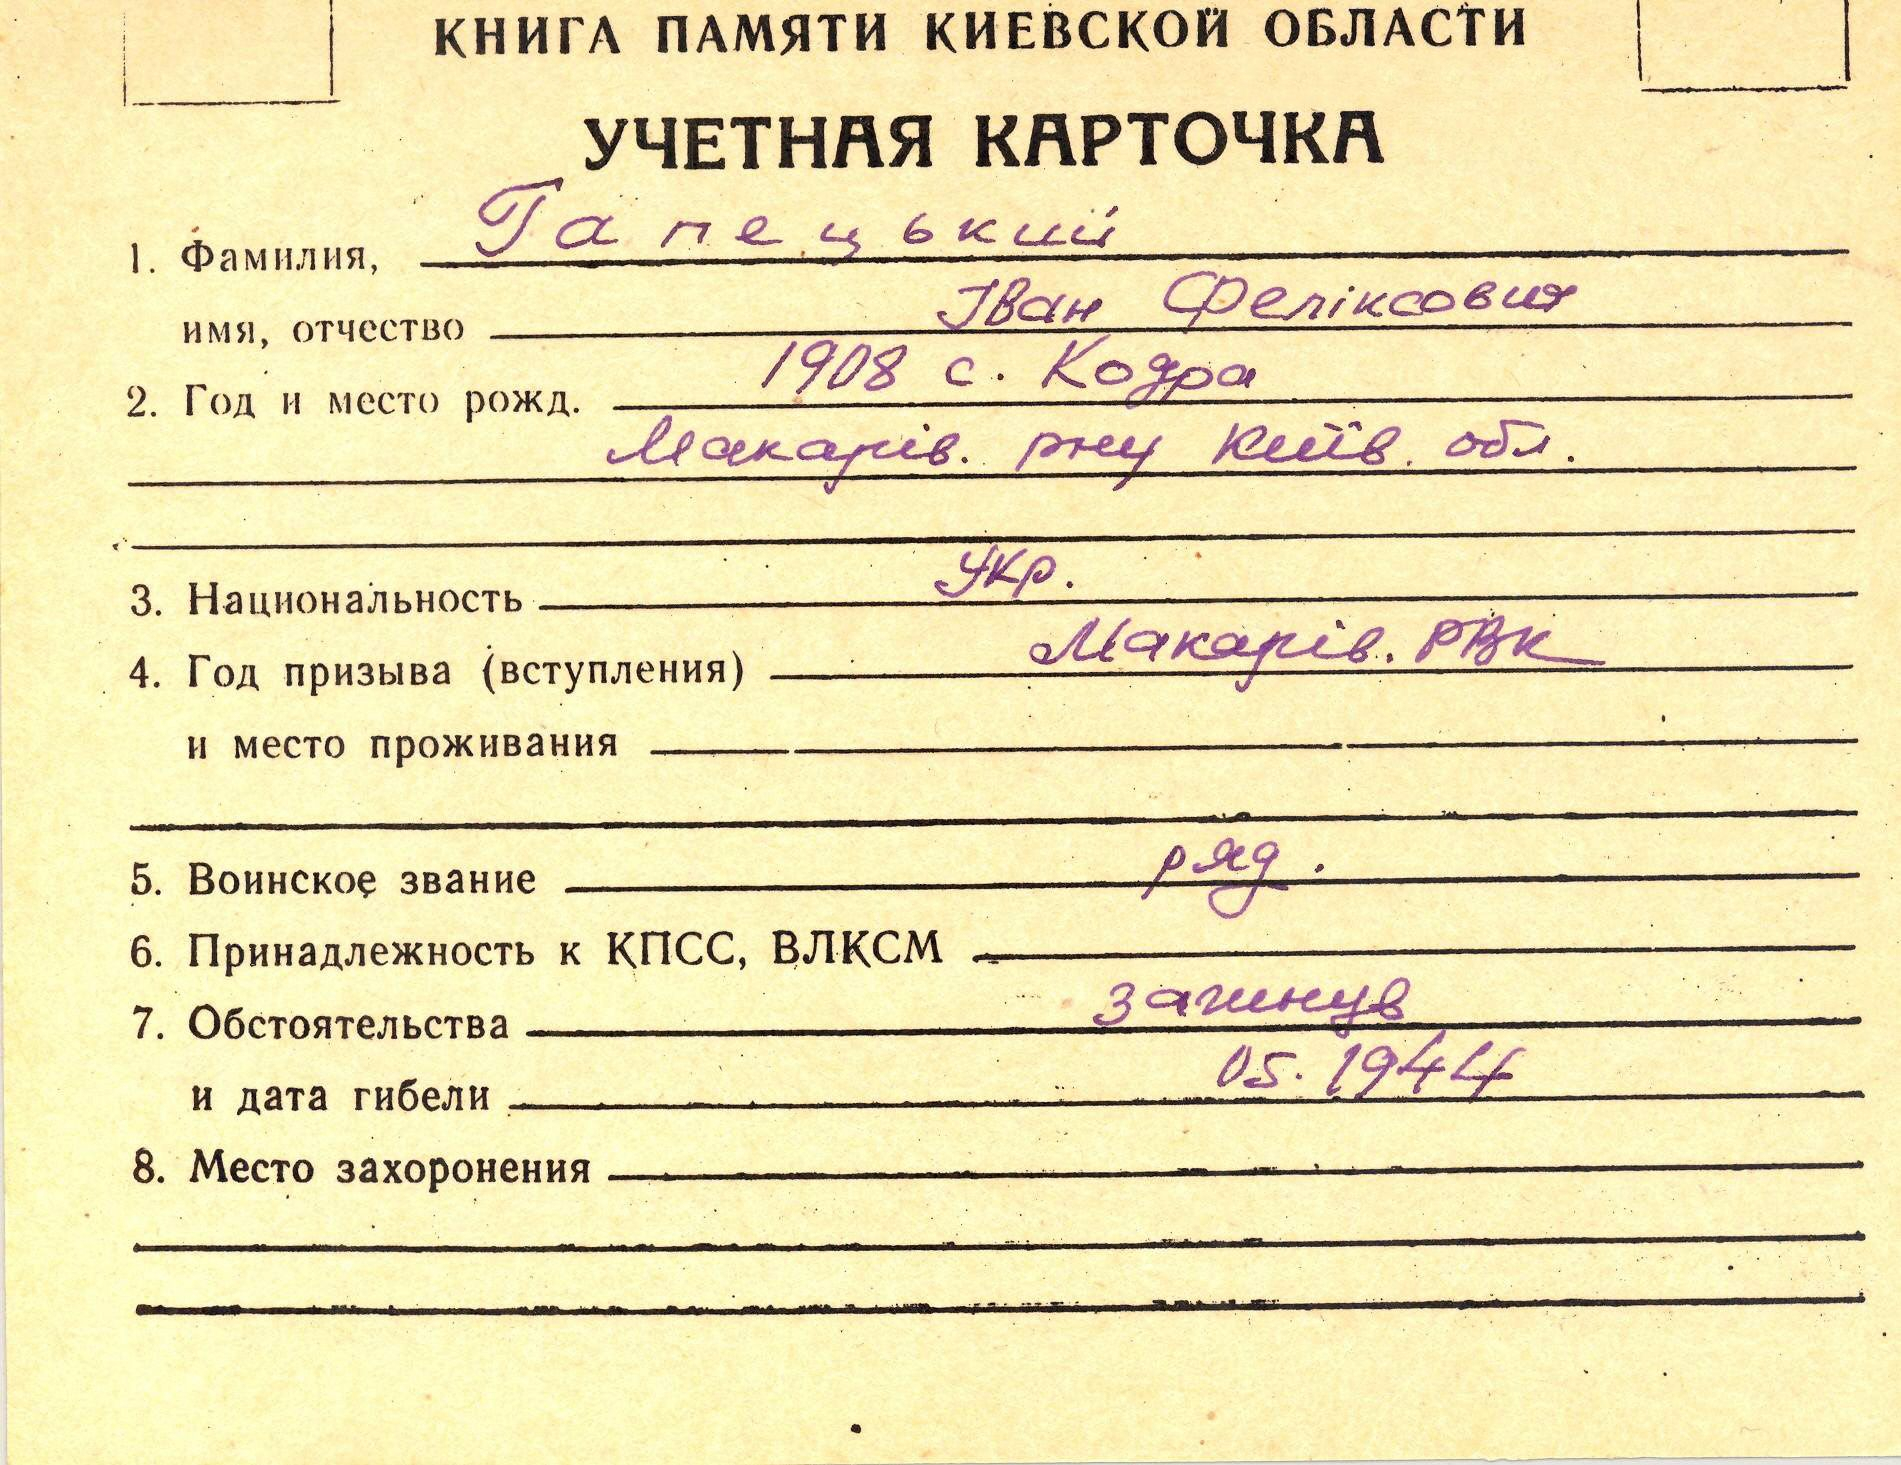 КНИГА ПАМЯТИ КИЕВСКОЙ ОБЛАСТИ
УЧЕТНАЯ КАРТОЧКА
1. Фамилия, Гапецький
имя, отчество Іван Феліксович
2. Год и место рожд. 1908 с. Кодра
Макарів. рну Київ. обл.
3. Национальность Укр.
4. Год призыва (вступления) Макарів. РВК
и место проживания
5. Воинское звание ряд.
6. Принадлежность к КПСС, ВЛКСМ
7. Обстоятельства загинув
и дата гибели 05.1944
8. Место захоронения